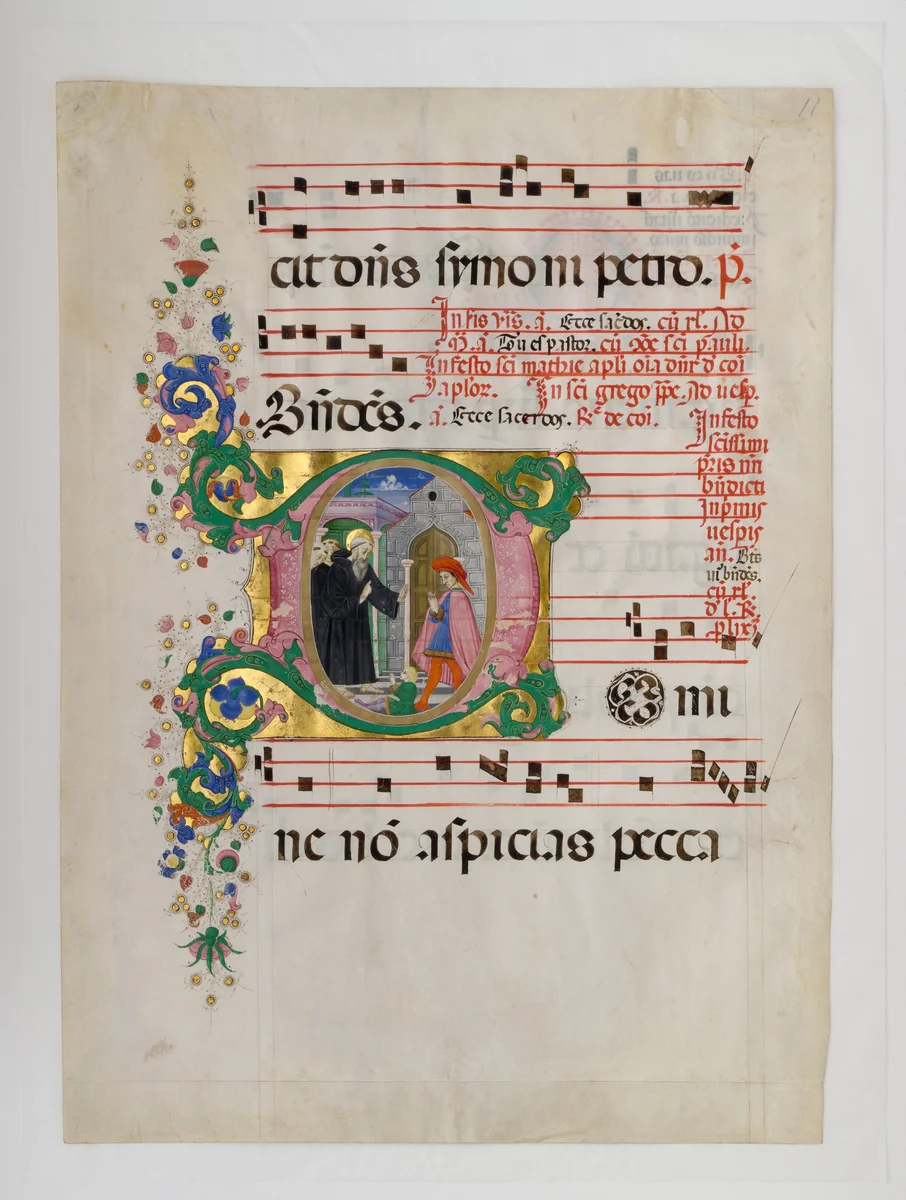 cit dn̄s symoni petro. p̄.
In fis v̄is. a̅. Ecce sac̄dos. cū rl̄. Ad
m̄. a̅. Tu es pastor. cū sc̄i pauli.
In festo sc̄i mathie apl̄i oīa dn̄r d̄ coī
aplōr. In sc̄i grego pp̄e. Ad uesp̄.
Bn̄dc̄s. a̅. Ecce sacerdos. R̄ de coī.
In festo
sc̄issimi
p̄ris nr̄i
bn̄dicti
In p̄mis
uesp̄is
an̄. Bt̄s
uir bn̄dc̄s.
cū rl̄.
d̄ l. R̄.
p̄lixū
D
O mi
ne nō aspicias pecca
11